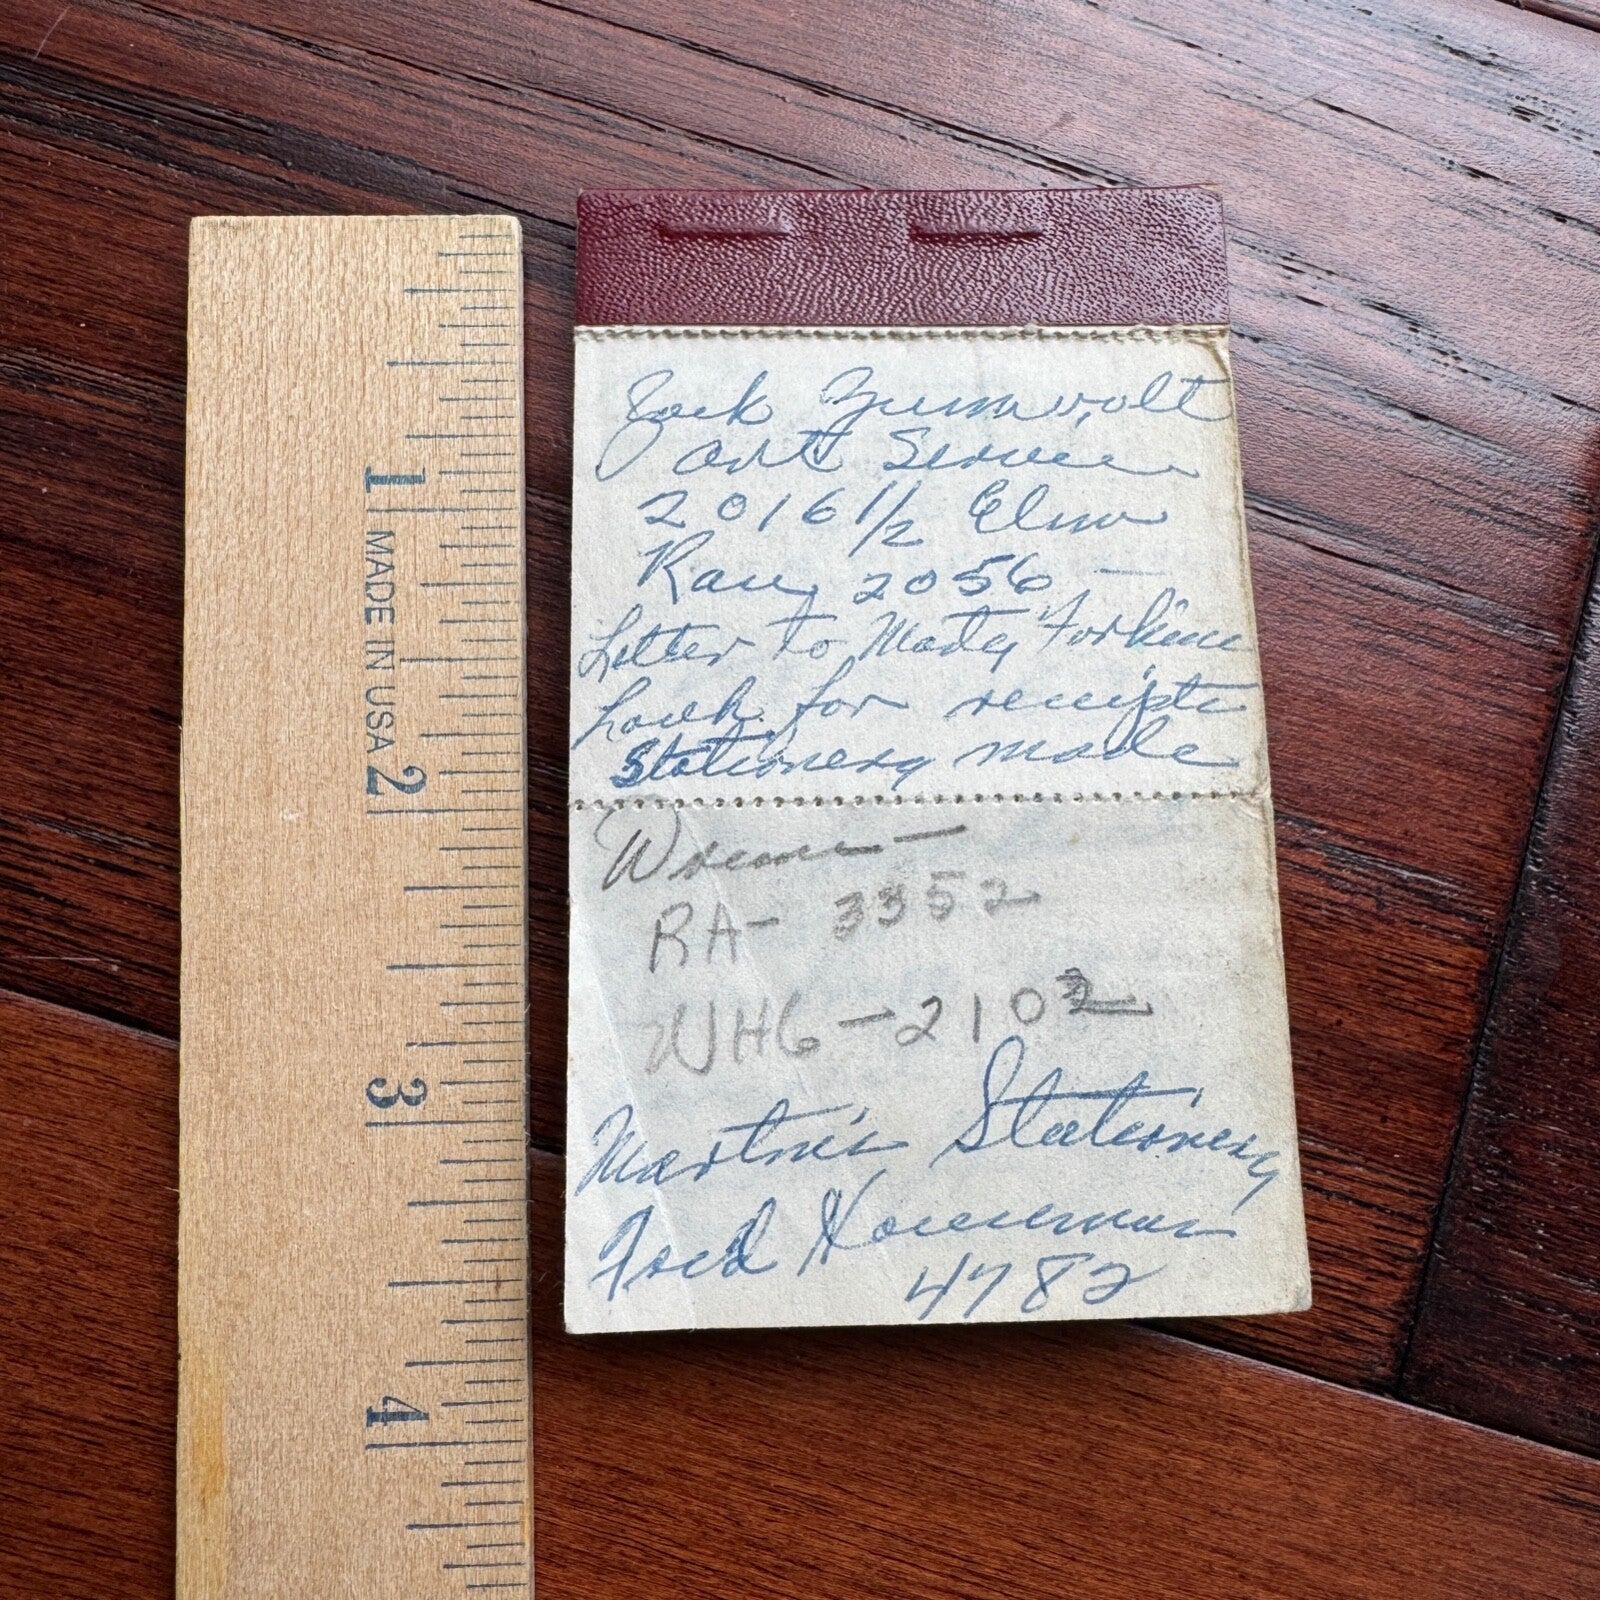 Jack Zumwalt
Art Service
2016 1/2 Elm
2056 —
Letter to Marty
Look for receipts
Stationery made
RA- 3352
WH6-2102
Martin's Stationery
Fred
4782
1
MADE IN USA
2
3
4